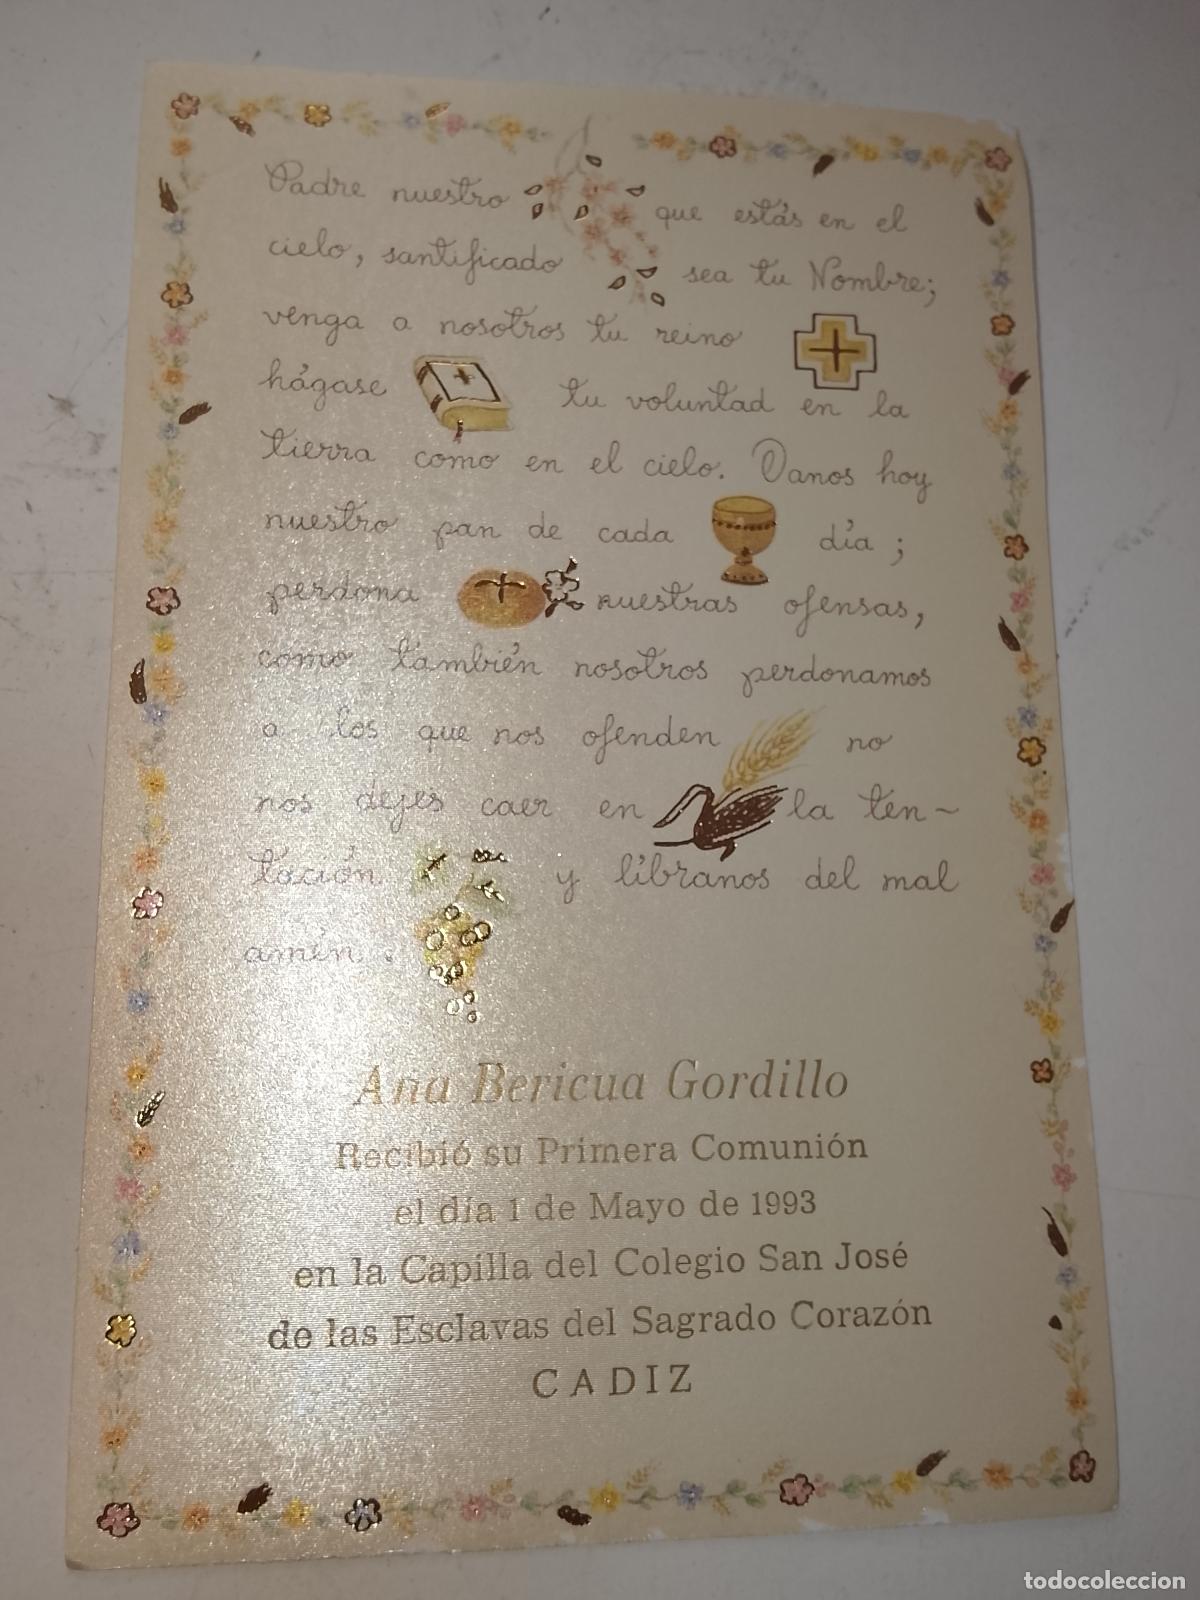 Padre nuestro que estás en el
cielo, santificado sea tu Nombre;
venga a nosotros tu reino
hágase tu voluntad en la
tierra como en el cielo. Danos hoy
nuestro pan de cada día;
perdona nuestras ofensas,
como también nosotros perdonamos
a los que nos ofenden no
nos dejes caer en la ten~
tación y líbranos del mal
amén.
Ana Bericua Gordillo
Recibió su Primera Comunión
el día 1 de Mayo de 1993
en la Capilla del Colegio San José
de las Esclavas del Sagrado Corazón
CADIZ
todocoleccion